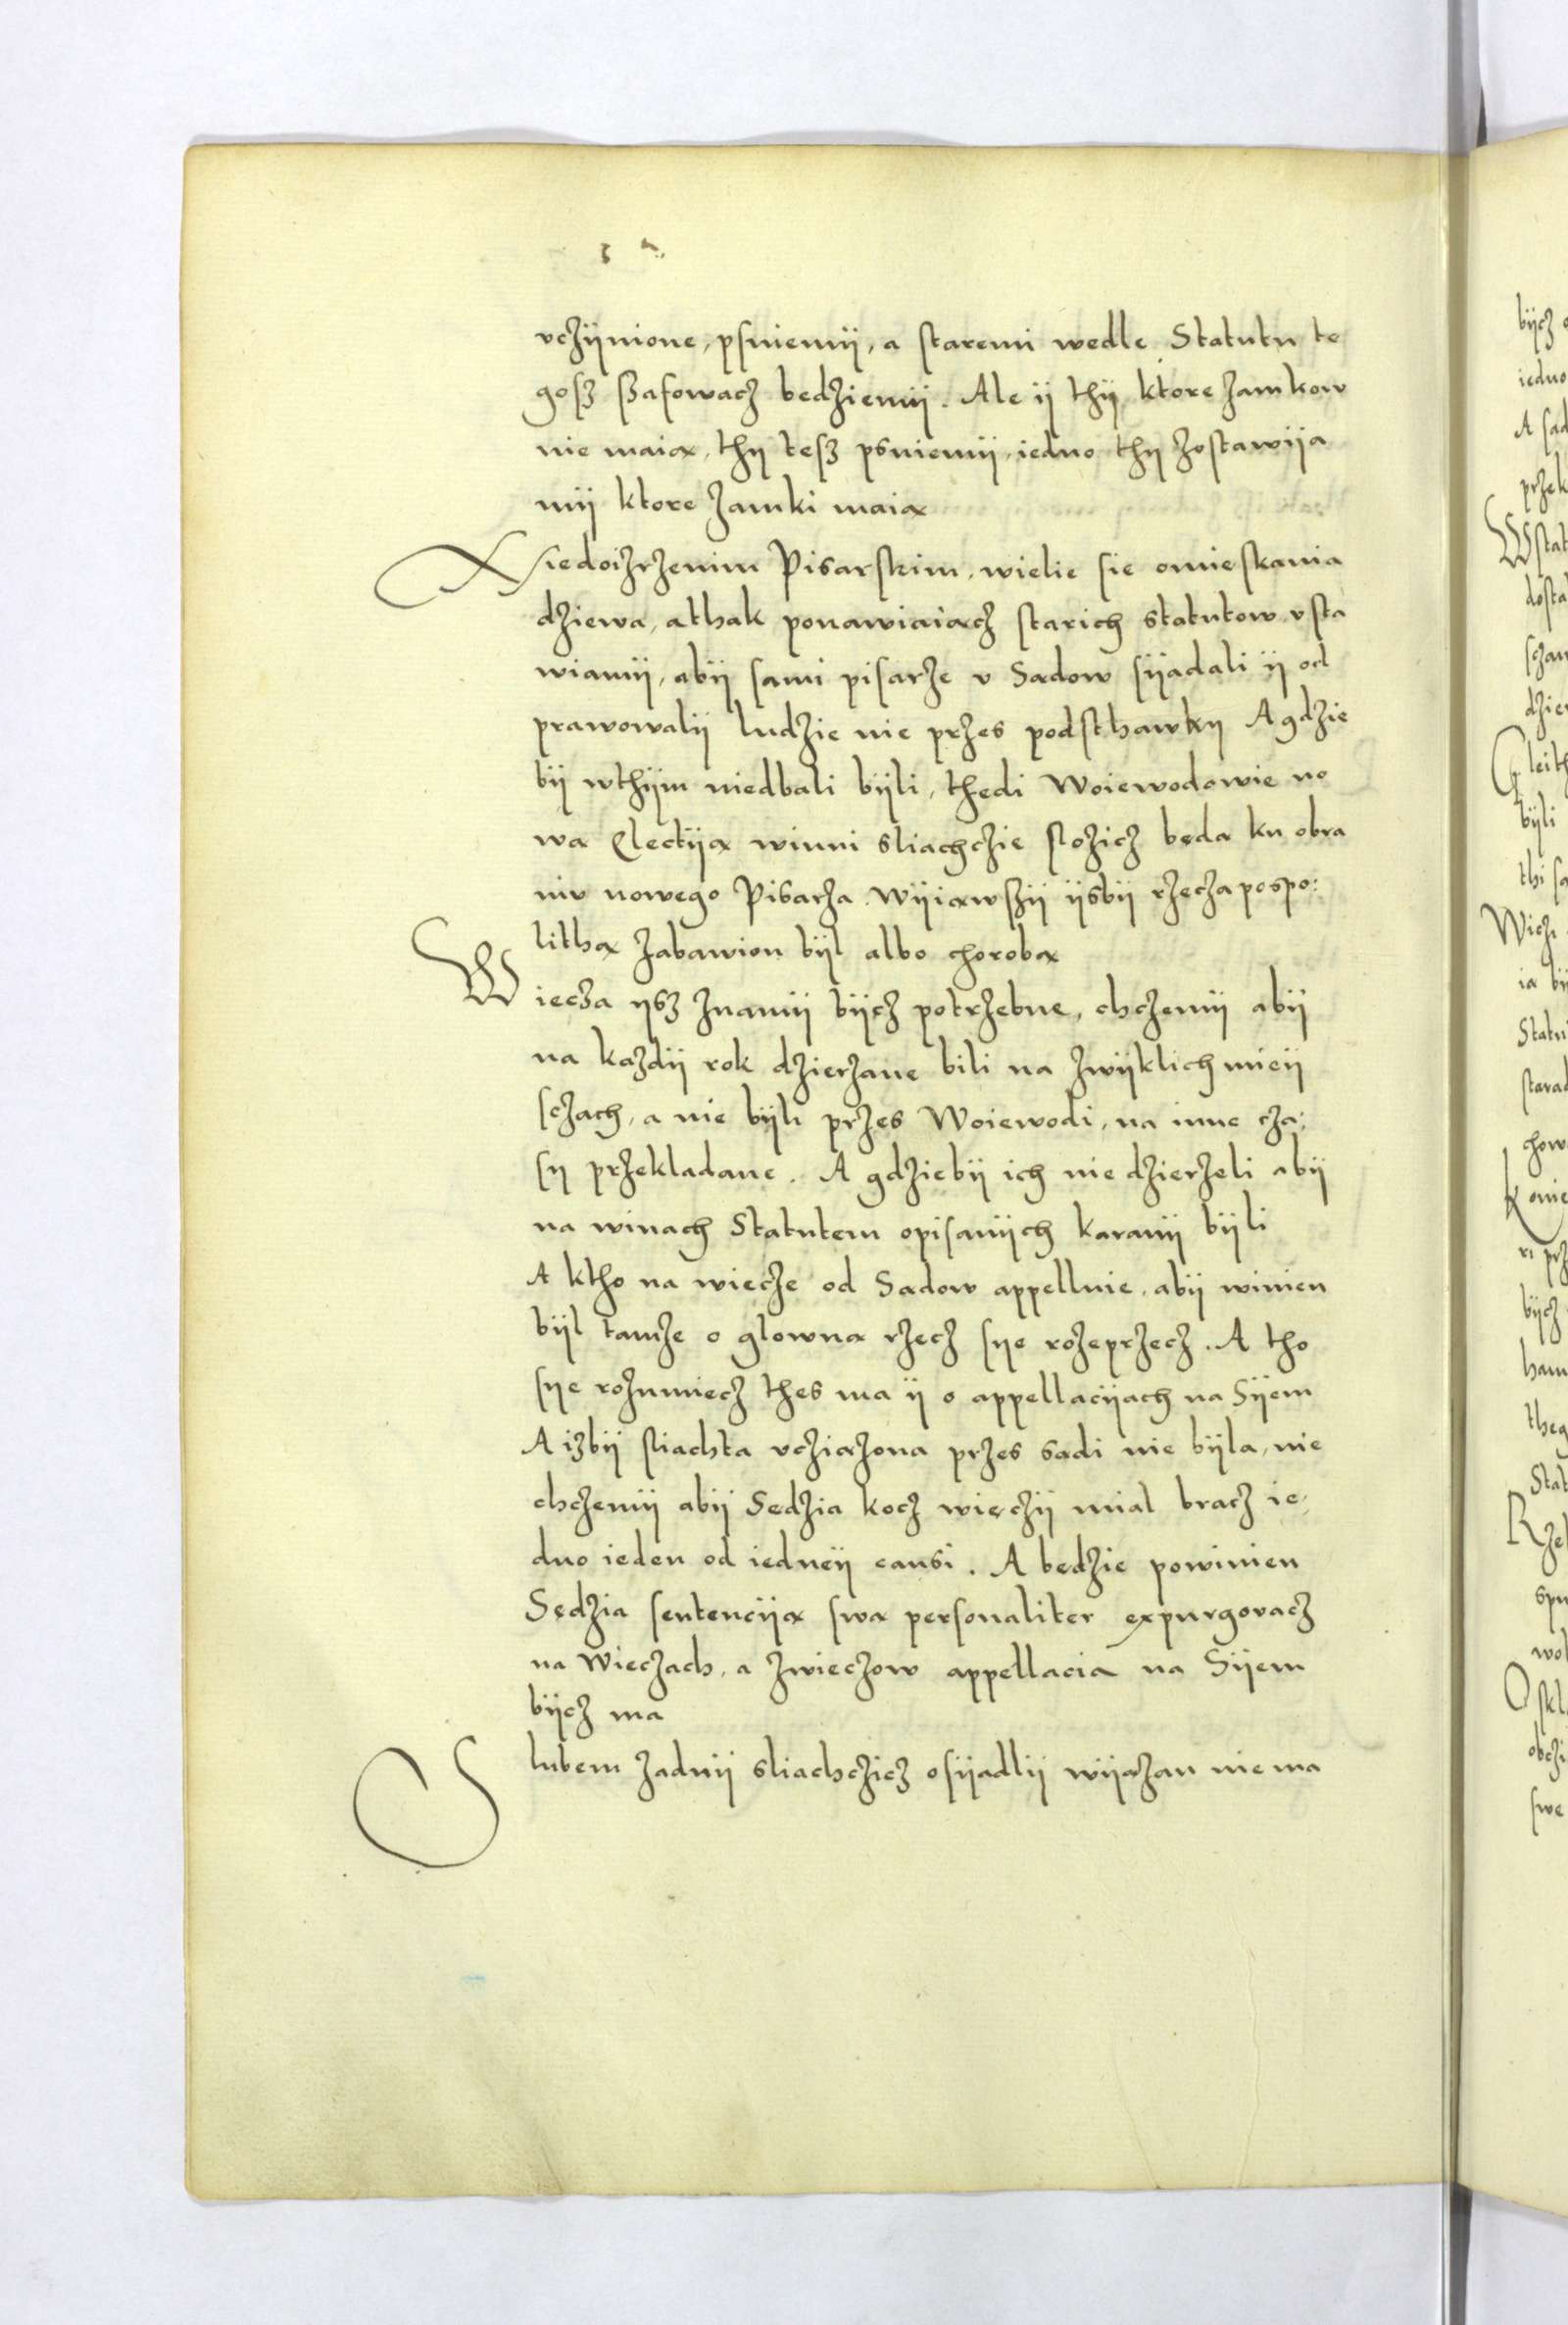 vcżÿnione, psuiemÿ, a staremi wedle Statutu te
gosz szafowacz bedziemÿ. Ale ÿ thÿ ktore zamkow
nie maią, thy tesz psuiemÿ, iedno thy zostawiia
mÿ ktore zamki maią
Niedoizrzenim Pisarskim, wielie sie omieskania
dziewa, a thak ponawiaiącz starich statutow vsta
wiamÿ, abÿ sami pisarze v Sądow sÿadali ÿ od
prawowalÿ ludzie nie przes podsthawky A gdzie
bÿ wthÿm niedbali bÿli, thedi Woiewodowie no
wą Electÿą winni sliachczie slozicz będą ku obra
niu nowego Pisarza wÿiąwszÿ ÿsbÿ rzecza pospo:
lithą zabawion bÿl albo chorobą
Wiecza ysz znamÿ bÿcz potrzebne, chczemÿ abÿ
na kazdÿ rok dzierzane bili na zwÿklich mieÿ
sczach, a nie bÿli przes Woiewodi, na inne cza:
sy przekladane. A gdziebÿ ich nie dzierzeli abÿ
na winach Statutem opisanÿch karanÿ bÿli
A ktho na wiecze od Sądow appelluie, abÿ winien
bÿl tamze o glowną rzecz sye rozeprzecz. A tho
sye rozumiecz thes ma ÿ o appellacÿach na Sÿem
A izbÿ sliachta vcziązona przes sądi nie bÿla, nie
chczemÿ abÿ Sędzia kocz więczÿ mial bracz ie:
dno ieden od iedneÿ causi. A bedzie powinien
Sędzia sentencÿą swą personaliter expurgovacz
na Wieczach, a zwieczow appellacia na Sÿem
bÿcz ma
Slubem żadnÿ sliachczicz osÿadlÿ wÿązan nie ma
bÿcz
iedno
A sąd
przek
Wstat
dosta
sczan
dzie
Gleith
bÿli
thi
Wicz
ia bÿ
Statu
starad
chow
Konie
prz
bÿcz
ham
theg
Stat
Rze
spu
wol
Oskl
obczi
swe